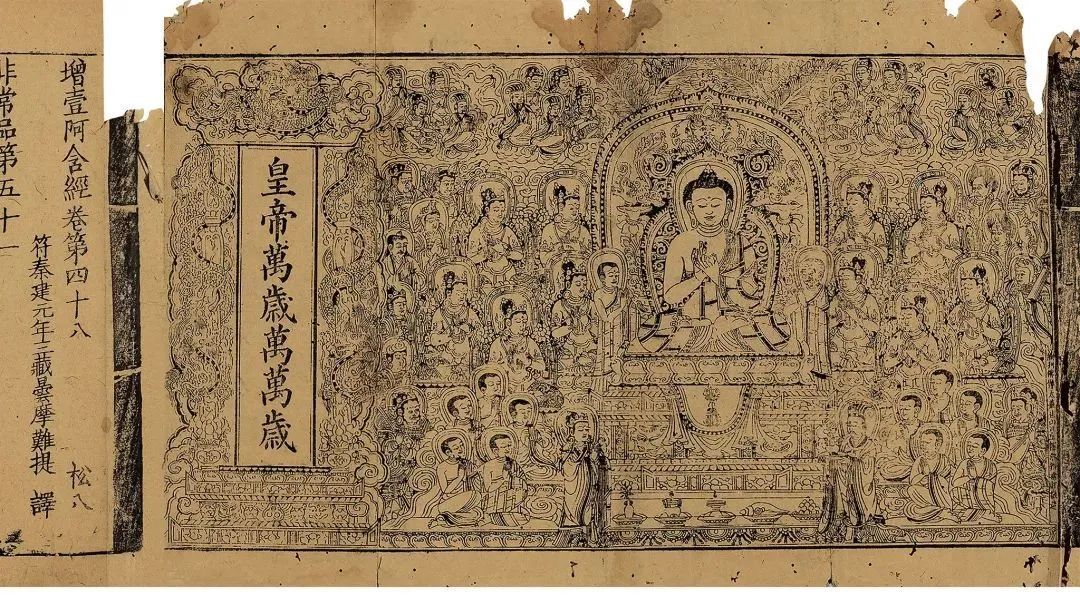 皇帝萬歲萬萬歲
增壹阿含經卷第四十八 松八
符秦建元年三藏曇摩難提 譯
非常品第五十一